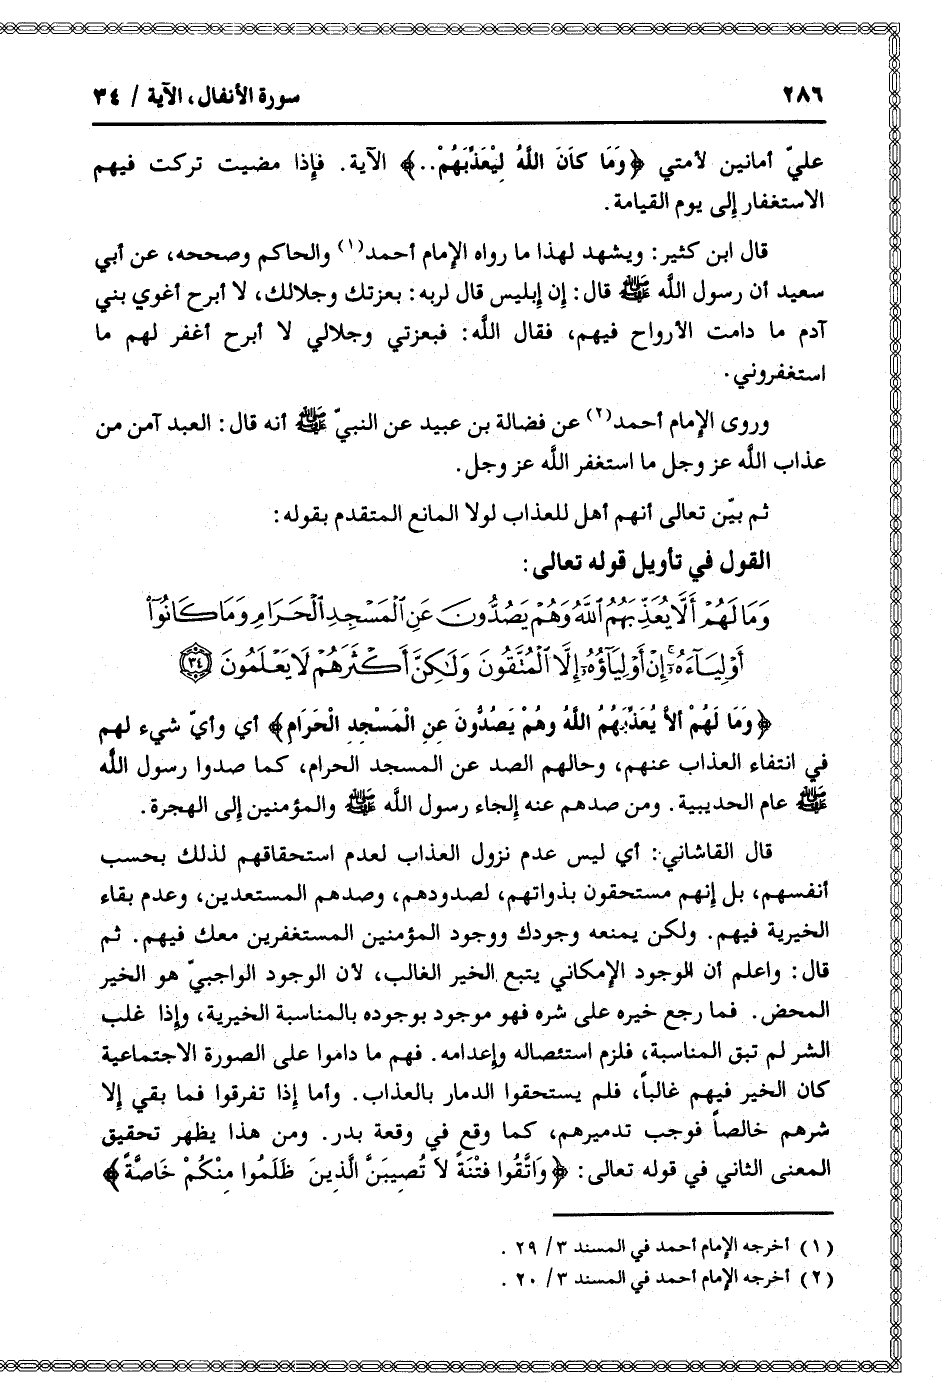 ٢٨٦
سورة الأنفال، الآية / ٣٤
عليّ أمانين لأمتي ﴿وَمَا كَانَ اللَّهُ لِيُعَذِّبَهُمْ..﴾ الآية. فإذا مضيت تركت فيهم
الاستغفار إلى يوم القيامة.
قال ابن كثير: ويشهد لهذا ما رواه الإمام أحمد(١) والحاكم وصححه، عن أبي
سعيد أن رسول الله ﷺ قال: إن إبليس قال لربه: بعزتك وجلالك، لا أبرح أغوي بني
آدم ما دامت الأرواح فيهم، فقال الله: فبعزتي وجلالي لا أبرح أغفر لهم ما
استغفروني.
وروى الإمام أحمد(٢) عن فضالة بن عبيد عن النبيّ ﷺ أنه قال: العبد آمن من
عذاب الله عز وجل ما استغفر الله عز وجل.
ثم بيّن تعالى أنهم أهل للعذاب لولا المانع المتقدم بقوله:
القول في تأويل قوله تعالى:
وَمَا لَهُمْ أَلَّا يُعَذِّبَهُمُ اللَّهُ وَهُمْ يَصُدُّونَ عَنِ الْمَسْجِدِ الْحَرَامِ وَمَا كَانُوا
أَوْلِيَاءَهُ إِنْ أَوْلِيَاؤُهُ إِلَّا الْمُتَّقُونَ وَلَكِنَّ أَكْثَرَهُمْ لَا يَعْلَمُونَ ٣٤
﴿وَمَا لَهُمْ أَلاَّ يُعَذِّبَهُمُ اللَّهُ وهُمْ يَصُدُّونَ عنِ الْمَسْجِدِ الْحَرَامِ﴾ أي وأيّ شيء لهم
في انتفاء العذاب عنهم، وحالهم الصد عن المسجد الحرام، كما صدوا رسول الله
ﷺ عام الحديبية. ومن صدهم عنه إلجاء رسول الله ﷺ والمؤمنين إلى الهجرة.
قال القاشاني: أي ليس عدم نزول العذاب لعدم استحقاقهم لذلك بحسب
أنفسهم، بل إنهم مستحقون بذواتهم، لصدودهم، وصدهم المستعدين، وعدم بقاء
الخيرية فيهم. ولكن يمنعه وجودك ووجود المؤمنين المستغفرين معك فيهم. ثم
قال: واعلم أن الوجود الإمكاني يتبع الخير الغالب، لأن الوجود الواجبيّ هو الخير
المحض. فما رجع خيره على شره فهو موجود بوجوده بالمناسبة الخيرية، وإذا غلب
الشر لم تبق المناسبة، فلزم استئصاله وإعدامه. فهم ما داموا على الصورة الاجتماعية
كان الخير فيهم غالباً، فلم يستحقوا الدمار بالعذاب. وأما إذا تفرقوا فما بقي إلا
شرهم خالصاً فوجب تدميرهم، كما وقع في وقعة بدر. ومن هذا يظهر تحقيق
المعنى الثاني في قوله تعالى: ﴿وَاتَّقُوا فِتْنَةً لاَ تُصِيبَنَّ الَّذِينَ ظَلَمُوا مِنْكُمْ خَاصَّةً﴾
(١) أخرجه الإمام أحمد في المسند ٣/ ٢٩ .
(٢) أخرجه الإمام أحمد في المسند ٣/ ٢٠ .